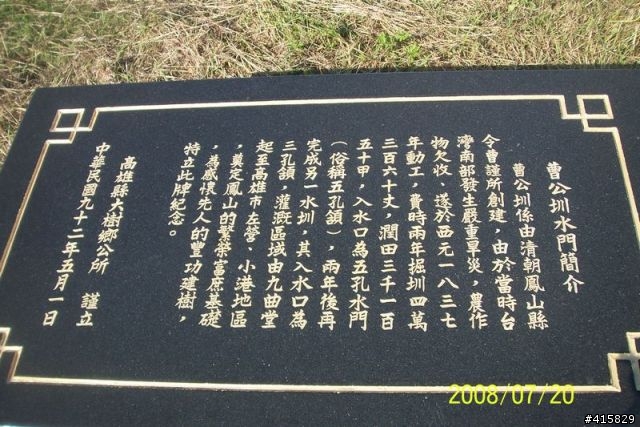 曹公圳水門簡介
曹公圳係由清朝鳳山縣
令曹謹所創建，由於當時台
灣南部發生嚴重旱災，農作
物欠收、遂於西元一八三七
年動工，費時兩年掘圳四萬
三百六十丈，潤田三千一百
五十甲，入水口為五孔水門
（俗稱五孔頷），兩年後再
完成另一水圳，其入水口為
三孔頷，灌溉區域由九曲堂
起至高雄市左營、小港地區
，奠定鳳山的繁榮富庶基礎
，為感懷先人的豐功建樹，
特立此牌紀念。
高雄縣大樹鄉公所 謹立
中華民國九十二年五月一日
2008/07/20
#415829